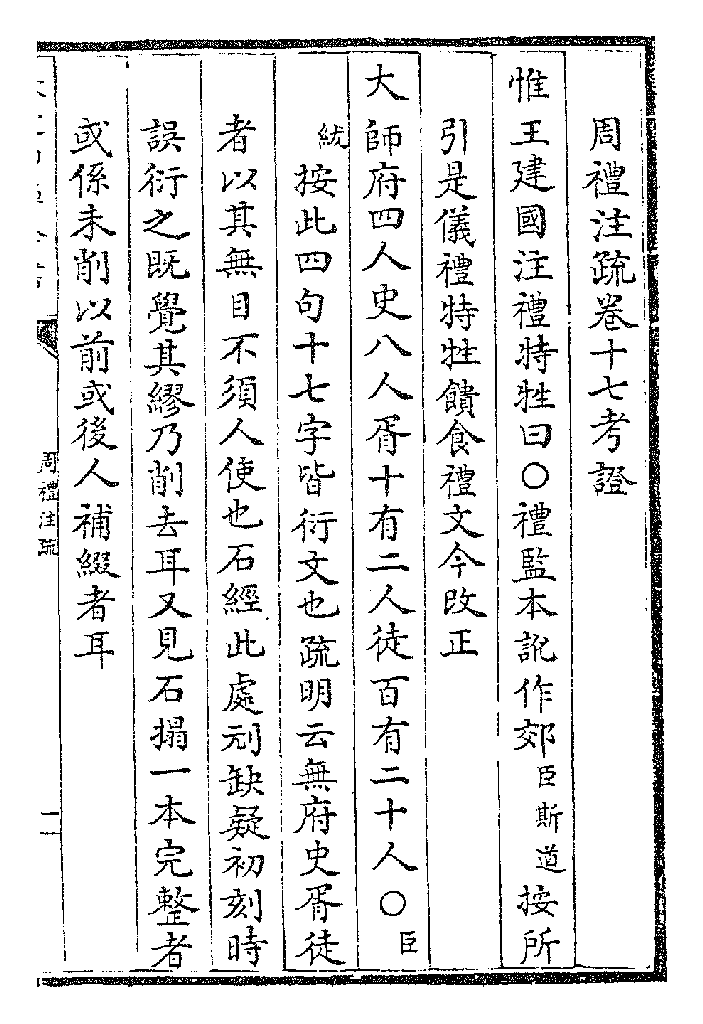 周禮注疏卷十七考證
惟王建國注禮特牲曰○禮監本訛作郊臣斯道按所
引是儀禮特牲饋食禮文今改正
大師府四人史八人胥十有二人徒百有二十人○臣
紱按此四句十七字皆衍文也疏明云無府史胥徒
者以其無目不須人使也石經此處刓缺疑初刻時
誤衍之既覺其繆乃削去耳又見石搨一本完整者
或係未削以前或後人補綴者耳
周禮注疏